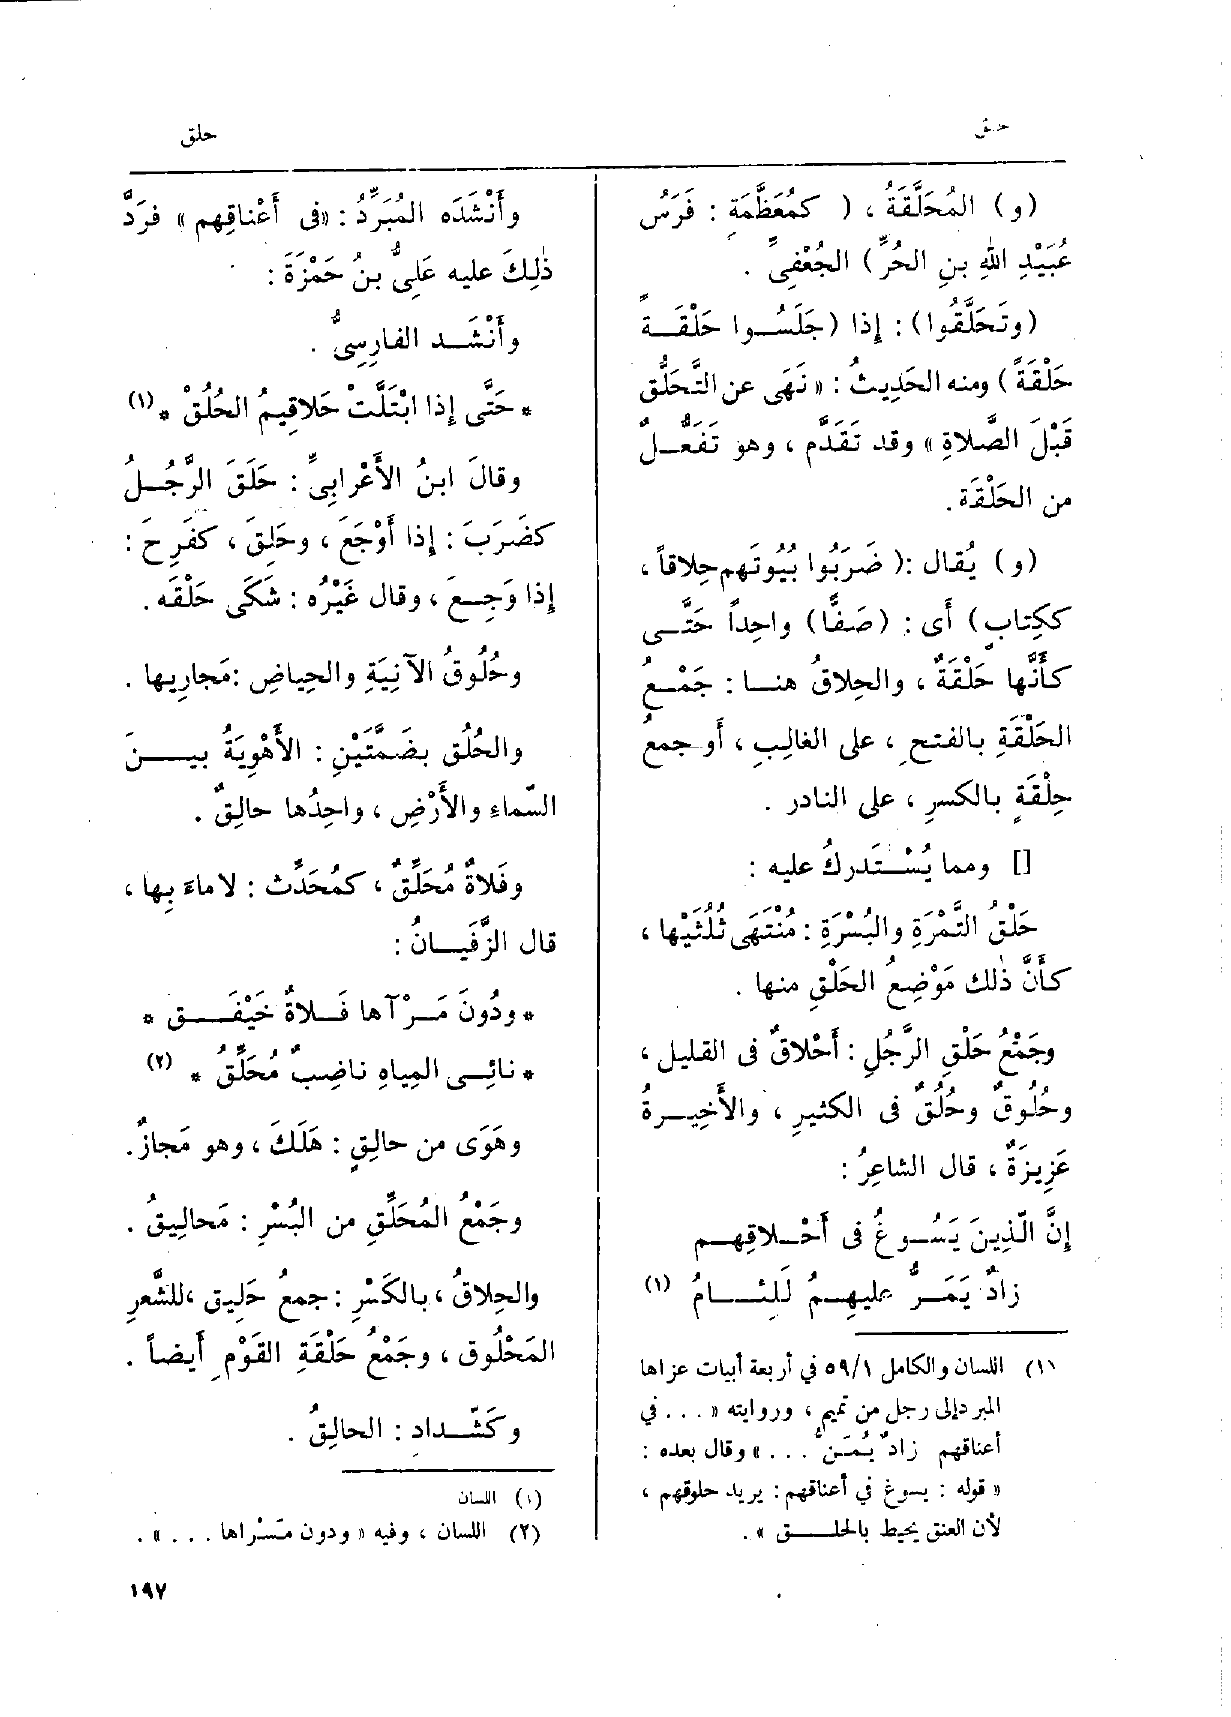 حلق
حلق
(و) المُحَلَّقَةُ ، ( كمُعَظَّمَةِ : فَرَسُ
عُبَيْدِ اللهِ بنِ الحُرِّ) الجُعْفِىِّ .
(وتَحَلَّقُوا) : إذا (جَلَسُوا حَلْقَةً
حَلْقَةً) ومنه الحَدِيثُ : «نَهَى عن التَّحَلُّقِ
قَبْلَ الصَّلاةِ» وقد تَقَدَّم ، وهو تَفَعُّلٌ
من الحَلْقَة.
(و) يُقال :( ضَرَبُوا بُيُوتَهم حِلاقاً ،
ككِتابٍ) أى : (صَفًّا) واحِداً حَتَّى
كأَنَّها حَلْقَةٌ ، والحِلاقُ هنا : جَمْعُ
الحَلْقَةِ بالفتحِ ، على الغالِبِ ، أو جمعُ
حِلْقَةٍ بالكسرِ ، على النادر .
[] ومما يُسْتَدركُ عليه :
حَلْقُ التَّمْرَةِ والبُسْرَةِ : مُنْتَهَى ثُلُثَيْها ،
كأَنَّ ذٰلك مَوْضِعُ الحَلْقِ منها .
وجَمْعُ حَلْقِ الرَّجُلِ : أَحْلاقٌ فى القليل ،
وحُلُوقٌ وحُلُقٌ فى الكثيرِ ، والأَخِيرةُ
عَزِيزَةٌ ، قال الشاعِرُ :
إنَّ الّذِينَ يَسُوغُ فى أَحْلاقِهِم
زادٌ يَمَرُّ عليهِمُ لَلِئامُ (١)
(١) اللسان والكامل ٥٩/١ في أربعة أبيات عزاها
المبرد إلى رجل من تميم ، وروايته « . . . في
أعناقهم زادٌ يُمَنُّ . . . » وقال بعده :
« قوله : يسوغ في أعناقهم : يريد حلوقهم ،
لأن العنق يحيط بالحلق » .
وأَنْشَدَه المُبَرِّدُ : «فى أَعْناقِهِم» فَرَدَّ
ذٰلِكَ عليه عَلِىُّ بنُ حَمْزَةَ :
وأَنْشَد الفارِسِىُّ .
* حَتَّى إذا ابْتَلَّتْ حَلاقِيمُ الحُلُقْ * (١)
وقالَ ابنُ الأَعْرابِىِّ : حَلَقَ الرَّجُلُ
كضَرَبَ : إذا أَوْجَعَ ، وحَلِقَ ، كفَرِحَ :
إذا وَجِعَ ، وقال غَيْرُه : شَكَى حَلْقَه .
وحُلُوقُ الآنِيَةِ والحِياضِ : مَجارِيها .
والحُلُق بضَمَّتَيْنِ : الأَهْوِيَةُ بينَ
السّماءِ والأَرْضِ ، واحِدُها حالِقٌ .
وفَلاةٌ مُحَلِّقٌ ، كمُحَدِّث : لا ماءَ بِها ،
قال الزَّفَيانُ :
* ودُونَ مَرْآها فَلاةٌ خَيْفَق *
* نائِى المِياهِ ناضِبٌ مُحَلِّقُ * (٢)
وهَوَى من حالِقٍ : هَلَكَ ، وهو مَجازٌ.
وجَمْعُ المُحَلِّقِ من البُسْرِ : مَحالِيقُ .
والحِلاقُ ، بالكَسْرِ : جمعُ حَلِيق ، للشَّعرِ
المَحْلُوق ، وجَمْعُ حَلْقَةِ القَوْمِ أَيضاً .
وكَشَّداد : الحالِقُ .
(١) اللسان
(٢) اللسان ، وفيه « ودون مَسْراها . . . » .
١٩٧